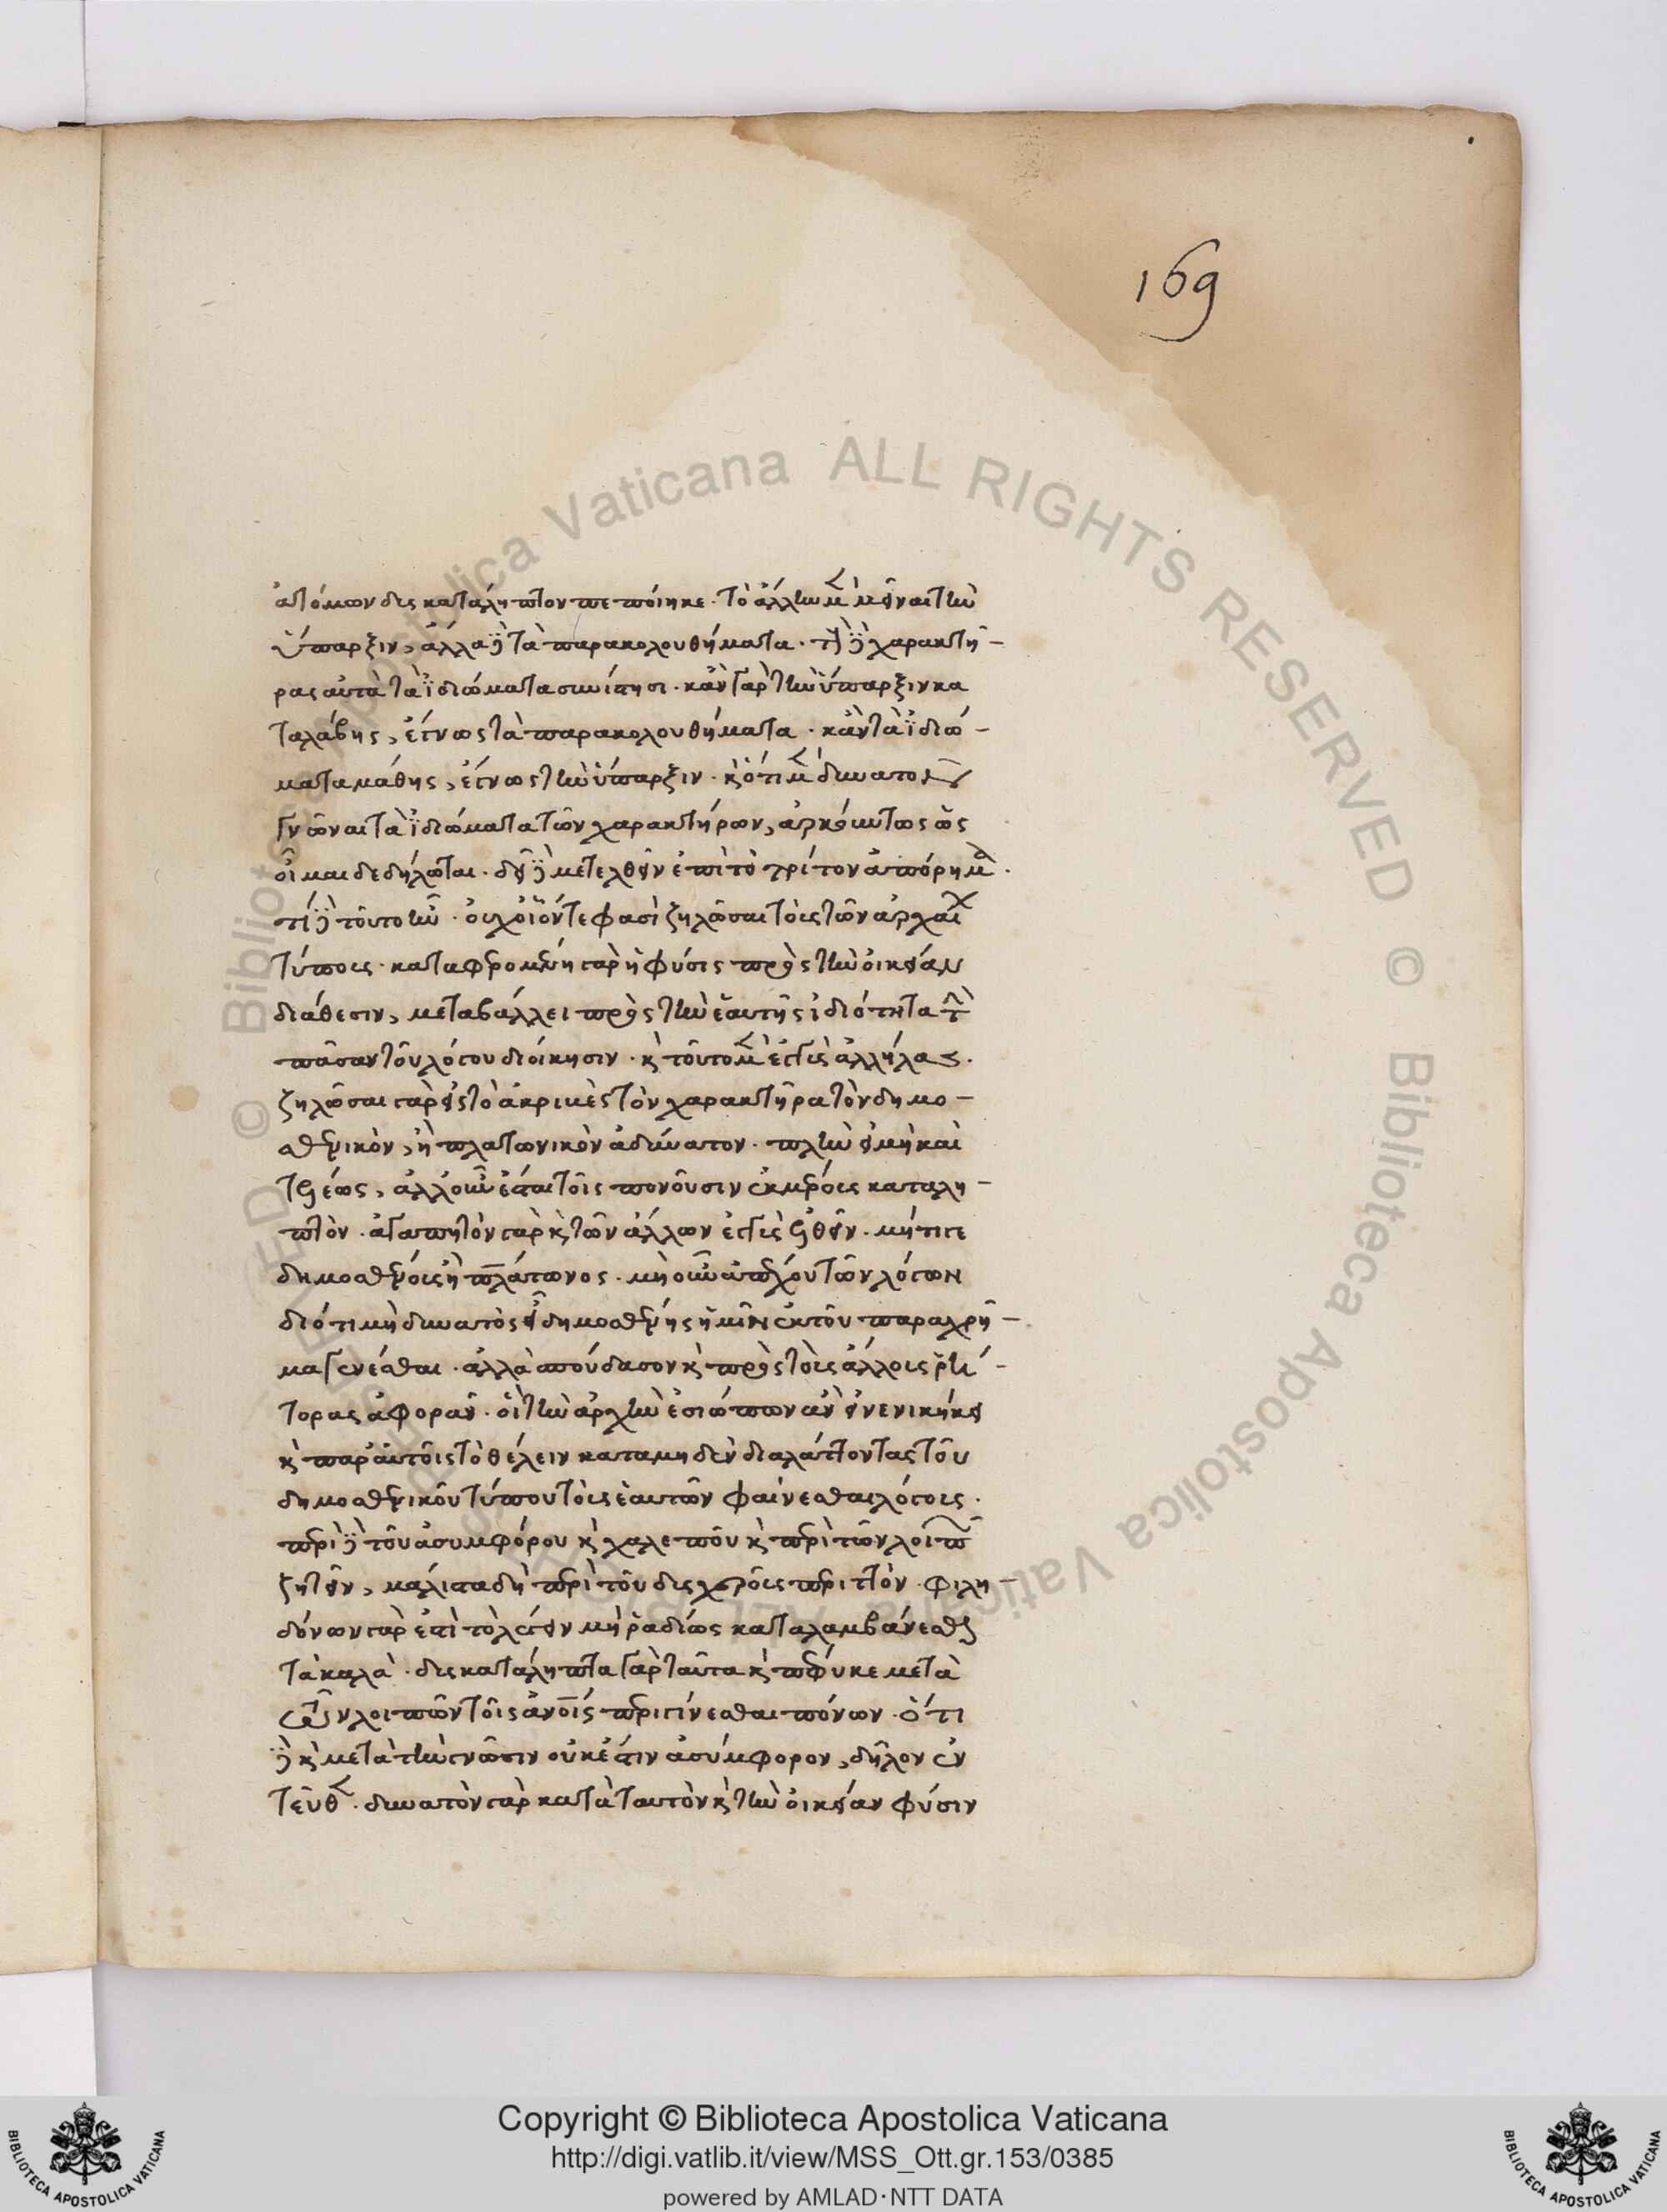 169
ἀτόμων δυσκατάληπτον πεποίηκε. τὸ ἄλλην μὲν εἶναι τὴν
ὕπαρξιν, ἄλλα δὲ τὰ παρακολουθήματα. τοὺς δὲ χαρακτῆ-
ρας αὐτὰ τὰ ἰδιώματα συνίστησι. κἂν γὰρ τὴν ὕπαρξιν κα
ταλάβῃς, ἔγνως τὰ παρακολουθήματα. κἂν τὰ ἰδιώ-
ματα μάθῃς, ἔγνως τὴν ὕπαρξιν. καὶ ὅτι μὲν δυνατὸν
γνῶναι τὰ ἰδιώματα τῶν χαρακτήρων, ἀρκούντως ὡς
οἶμαι δεδήλωται. δεῖ δὲ μετελθεῖν ἐπὶ τὸ τρίτον ἀπόρημα.
τί δὲ τοῦτο ἦν. οὐχ οἷόν τε φασὶ ζηλῶσαι τοὺς τῶν ἀρχαίων
τύπους. καταφερομένη γὰρ ἡ φύσις πρὸς τὴν οἰκείαν
διάθεσιν, μεταβάλλει πρὸς τὴν ἑαυτῆς ἰδιότητα τὴν
πᾶσαν τοῦ λόγου διοίκησιν. καὶ τοῦτο μὲν ἐστὶν ἀλλήλας.
ζηλῶσαι γὰρ εἰς τὸ ἀκριβὲς τὸν χαρακτῆρα τὸν δημο-
σθενικὸν, ἢ πλατωνικὸν ἀδύνατον. πλὴν εἰ μὴ καὶ
τελέως, ἀλλ' οὖν ἔσται τοῖς πονοῦσιν ἐκ μέρους καταλη-
πτόν. ἀγαπητὸν γὰρ καὶ τῶν ἄλλων ἐστὶν ἐλθεῖν. μήτιγε
δημοσθένους ἢ πλάτωνος. μὴ οὖν ἀπέχου τῶν λόγων
διότι μὴ δυνατὸς εἶ δημοσθένης ἡμῖν ἐκ τοῦ παραχρῆ-
μα γενέσθαι. ἀλλὰ σπούδασον καὶ πρὸς τοὺς ἄλλους ῥή-
τορας ἀφορᾶν. οἳ τὴν ἀρχὴν ἐσιώπων ἂν εἰ νενικήκει
καὶ παρ' αὐτοῖς τὸ θέλειν κατὰ μηδὲν διαλάττοντας τοῦ
δημοσθενικοῦ τύπου τοὺς ἑαυτῶν φαίνεσθαι λόγους.
περὶ δὲ τοῦ ἀσυμφόρου καὶ χαλεποῦ καὶ περὶ τῶν λοιπῶν
ζητεῖν, μάλιστα δὴ περὶ τοῦ δυσχεροῦς περιττόν. φιλη-
δόνων γὰρ ἐπὶ τὸ λέγειν μὴ ῥαδίως καταλαμβάνεσθαι
τὰ καλά. δυσκατάληπτα γὰρ ταῦτα καὶ πέφυκε μετὰ
τῶν λοιπῶν τοῖς ἀνοις περιγίνεσθαι πόνων. ὅτι
δὲ καὶ μετὰ τὴν γνῶσιν οὐκ ἔστιν ἀσύμφορον, δῆλον ἐν
τεῦθεν. δυνατὸν γὰρ κατὰ ταυτὸν καὶ τὴν οἰκείαν φύσιν
Copyright © Biblioteca Apostolica Vaticana
http://digi.vatlib.it/view/MSS_Ott.gr.153/0385
powered by AMLAD·NTT DATA
BIBLIOTECA APOSTOLICA VATICANA
BIBLIOTECA APOSTOLICA VATICANA
© Biblioteca Apostolica Vaticana ALL RIGHTS RESERVED
© Biblioteca Apostolica Vaticana ALL RIGHTS RESERVED